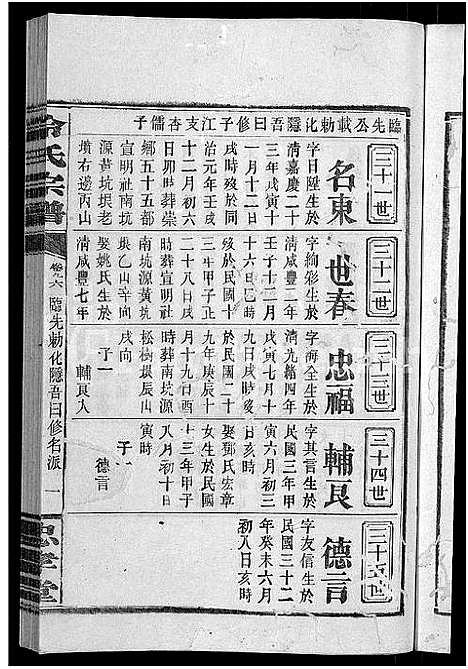 臨先公載勅化隱吾曰修子江支杏儒子
三十一世
名東
字日陞生於
清嘉慶二十
三年戊寅十
一月十二日
戌時歿於同
治元年壬戌
十二月初六
日卯時葬崇
鄉五十五都
宣明社南坑
源黃坑垠老
墳右邊丙山
三十二世
世春
字絢彩生於
清咸豐二年
壬子十二月
十六日巳時
歿於民國十
三年甲子正
二十八日戌
時葬宣明社
南坑源黃坑
垠乙山辛向
娶姚氏生於
清咸豐七年
三十三世
忠福
字海全生於
清光緒四年
戊寅七月十
九日戌時歿
於民國二十
九年庚辰十
月十九日酉
時葬南坑源
松樹垠辰山
戌向
子一
輔艮人
三十四世
輔艮
字其言生於
民國三年甲
寅六月初三
日亥時
娶鄧氏宏章
女生於民國
十三年甲子
八月初十日
寅時
子一
德言
三十五世
德言
字友信生於
民國三十二
年癸未六月
初八日亥時
冷氏宗譜
卷之六
臨先勅化隱吾曰修名派
一
忠孝堂